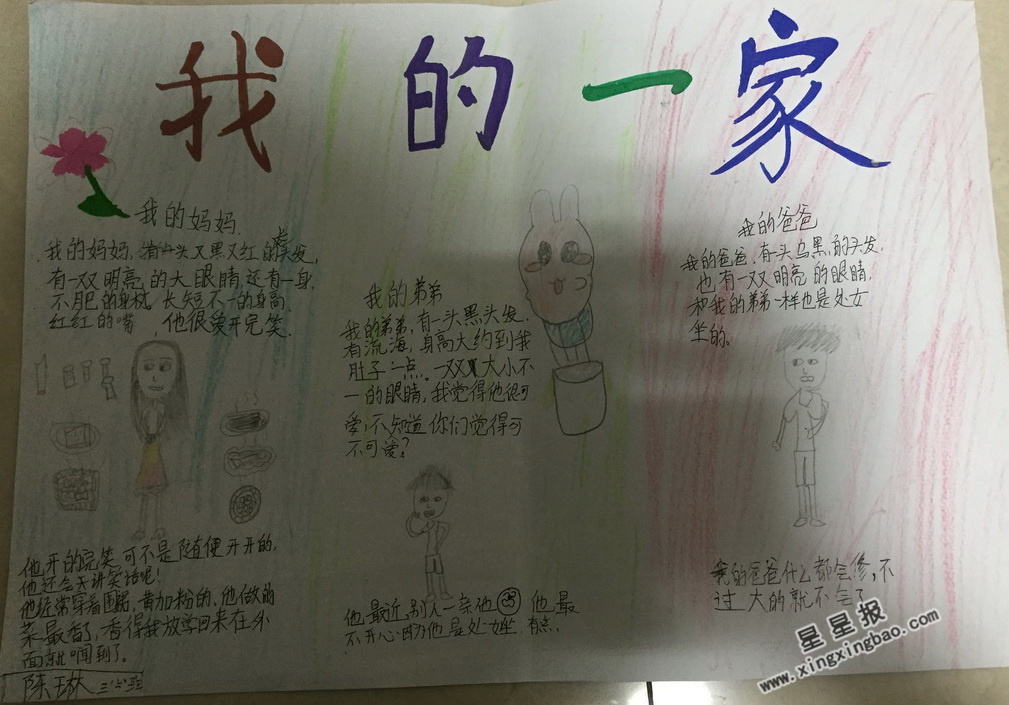 我的一家
我的妈妈
我的妈妈,有一头又黑又红的长头发,
有一双明亮的大眼睛,还有一身
不肥的身材,长短不一的身高,
红红的嘴,他很爱开完笑。
他开的完笑,可不是随便开开的,
他还会天讲笑话呢!
他经常穿着围裙,黄加粉的,他做的
菜最香了,香得我放学回来在外
面就闻到了。
陈琳 三六班
我的弟弟
我的弟弟,有一头黑头发,
有流海,身高大约到我
肚子一点。一双大小不
一的眼睛,我觉得他很可
爱,不知道你们觉得可
不可爱?
他最近,别人一亲他 他最
不开心,因为他是处女坐。
我的爸爸
我的爸爸,有一头乌黑的头发,
也有一双明亮的眼睛,
和我的弟弟一样也是处女
坐的。
我的爸爸什么都会修,不
过大的就不会了
星星报
www.xingxingbao.com